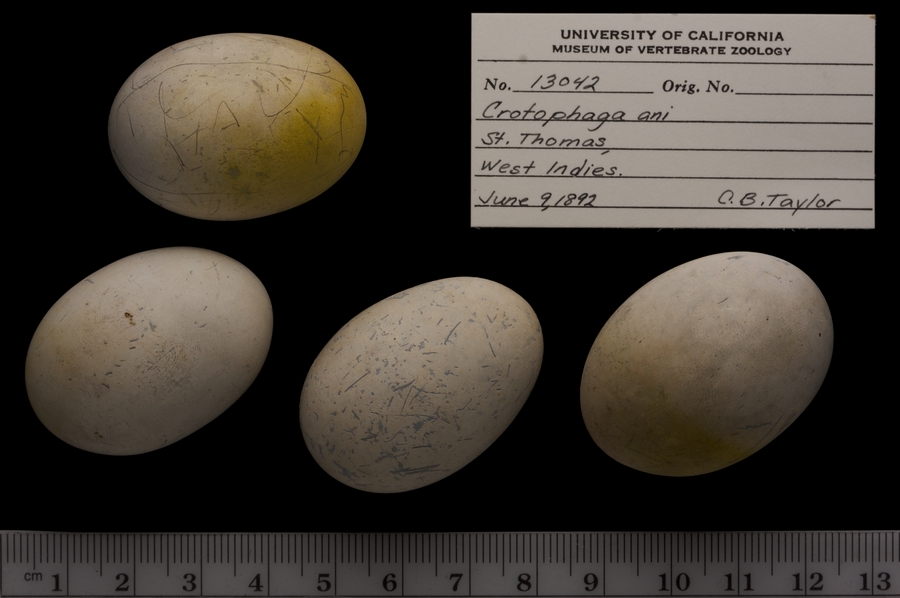 UNIVERSITY OF CALIFORNIA
MUSEUM OF VERTEBRATE ZOOLOGY
No. 13042 Orig. No.
Crotophaga ani
St. Thomas,
West Indies.
June 9, 1892 C. B. Taylor
cm 1 2 3 4 5 6 7 8 9 10 11 12 13